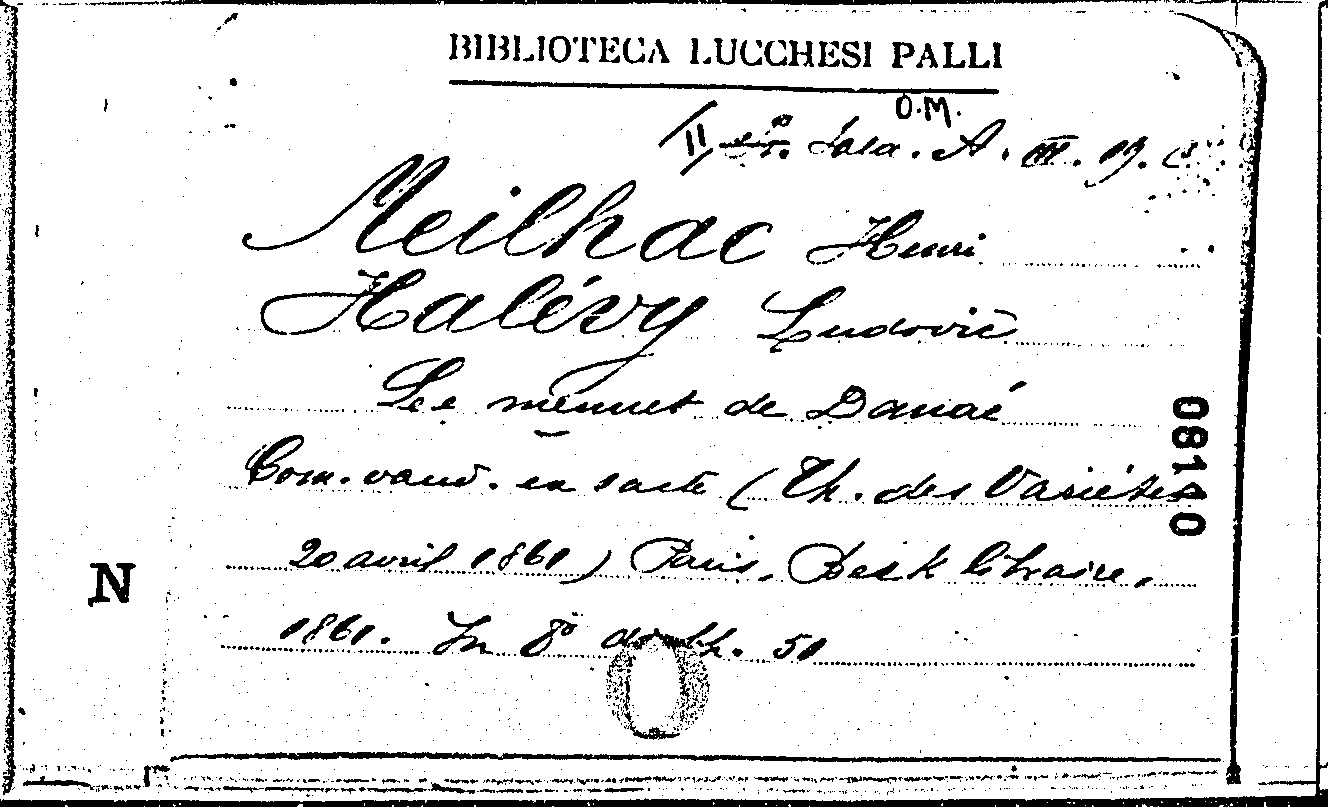 BIBLIOTECA LUCCHESI PALLI
O.M.
II Sala. A. III. 19.
Meilhac Henri
Halévy Ludovic
Le menuet de Danaé
Com. vaud. en 1 acte (Th. des Variétés
20 avril 1861) Paris, Beck libraire,
1861. In 8° de 50
08140
N